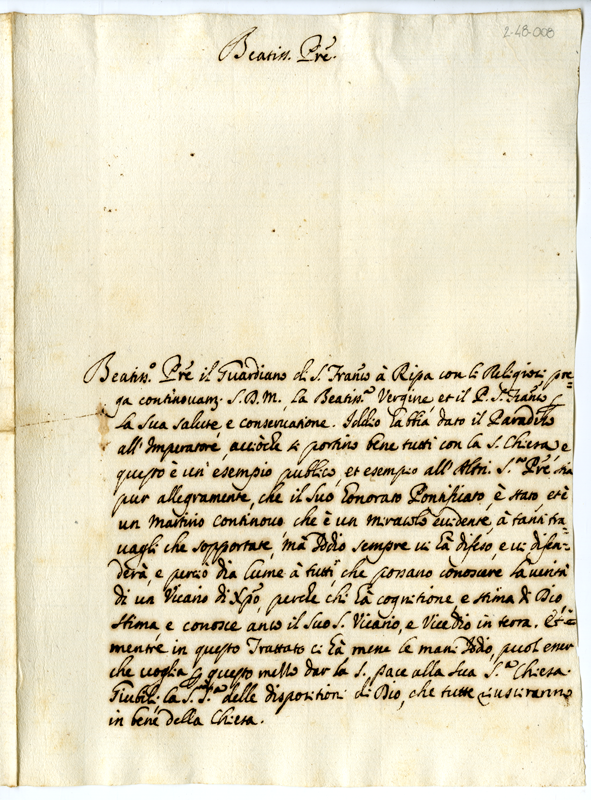 2-48-008
Beatiss. Pre.
Beatiss.o Pre il Guardiano di S. Franco à Ripa con li Religiosi pre=
ga continovam. S. D. M. la Beatiss.a Vergine et il P. S. Franco p
la Sua Salute e conservatione. Iddio labbia dato il Paradiso
all'Imperatore, acciòche si portino bene tutti con la S. Chiesa, e
questo è un esempio publico, et esempio all'Altri. S.mo Pre stia
pur allegramente, che il Suo honorato Pontificato, è stato, et è
un Martirio continovo che è un miracolo evidente, à tanti tra
vagli che sopportate, mà Iddio sempre vi hà difeso, e vi difen=
derà, e perciò dia lume à tutti, che possano conoscere la verità
di un Vicario di Xpo, perche chi hà cognitione e stima di Dio
Stima e conosce anco il Suo S. Vicario, e Vice Dio in terra.
mentre in questo Trattato ci hà messe le mani Iddio, puol esser
che voglia p questo mezzo dar la S. pace alla Sua S.a Chiesa.
Giubili la S. S.a delle dispositioni di Dio, che tutte riusciranno
in bene della Chiesa.